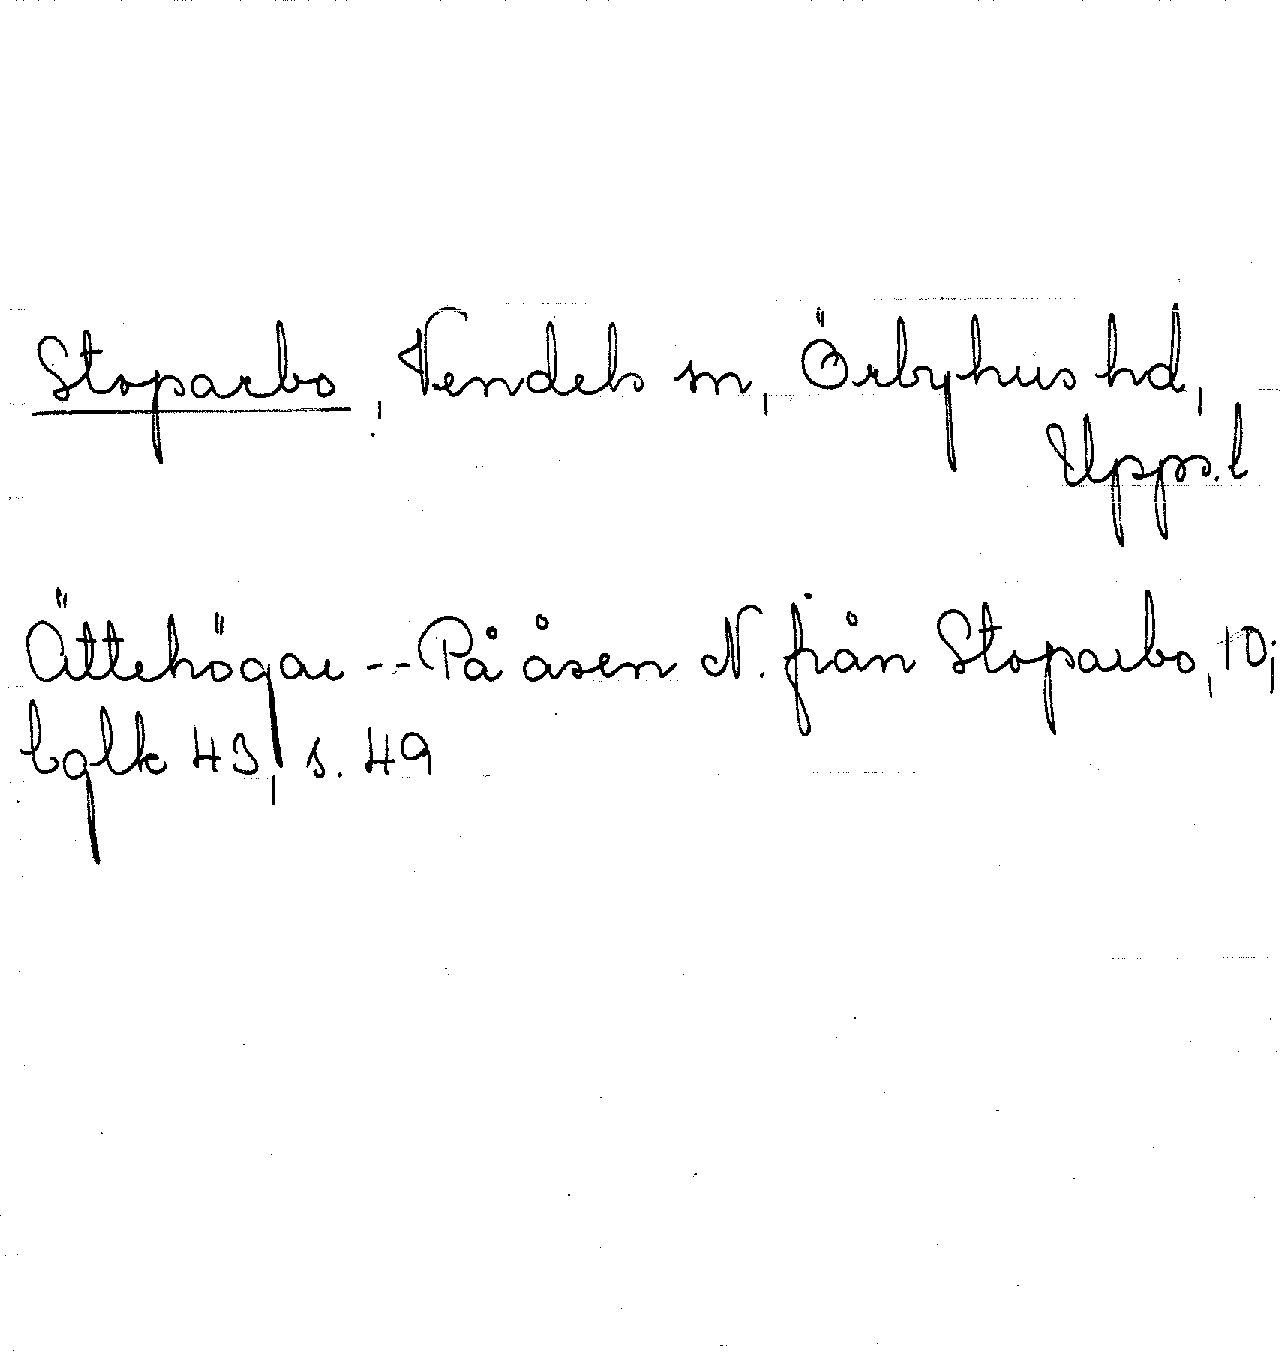 Stoparbo, Vendels sn, Örbyhus hd,
Upps. l
Ättehögar -- På åsen N. från Stoparbo, 10;
bglk 43, s. 49